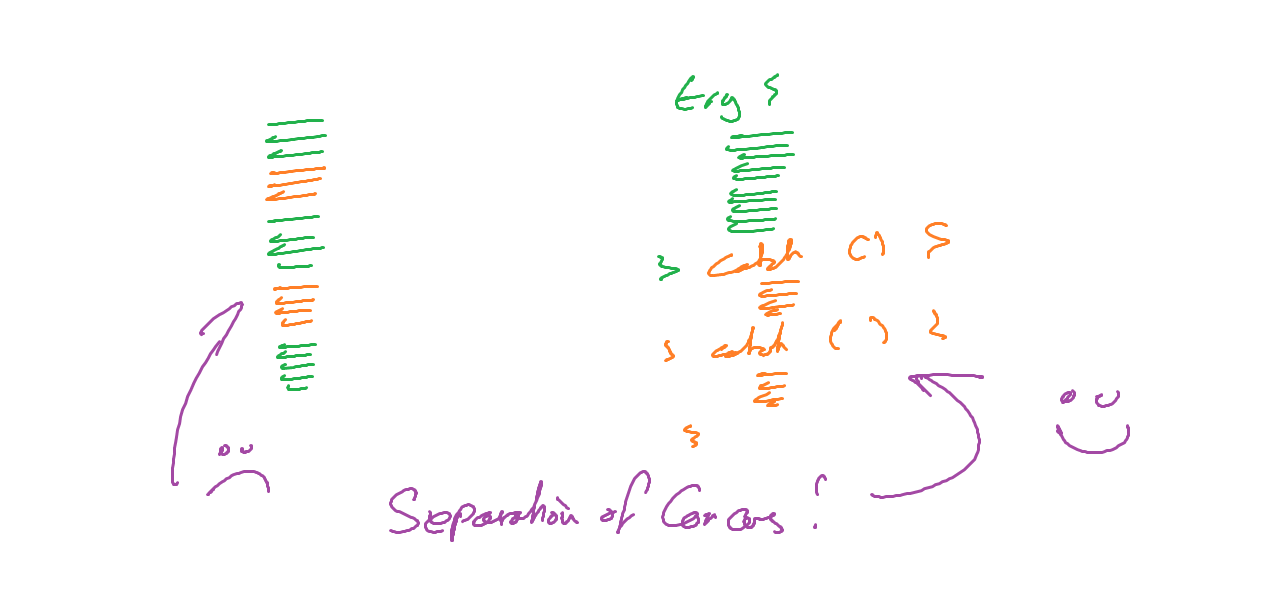 Try {
} catch () {
} catch () {
}
Separation of Concerns!